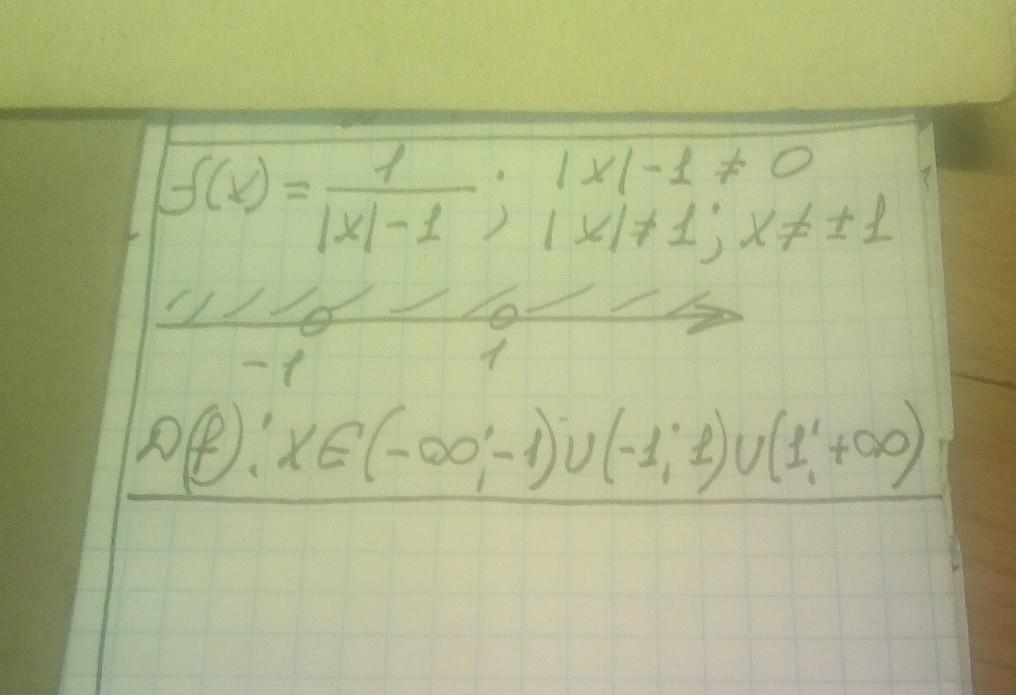 f(x) = 1/(|x| - 1) ; |x| - 1 ≠ 0
|x| ≠ 1; x ≠ ± 1
-1 1
D(f): x ∈ (-∞; -1) ∪ (-1; 1) ∪ (1; +∞)